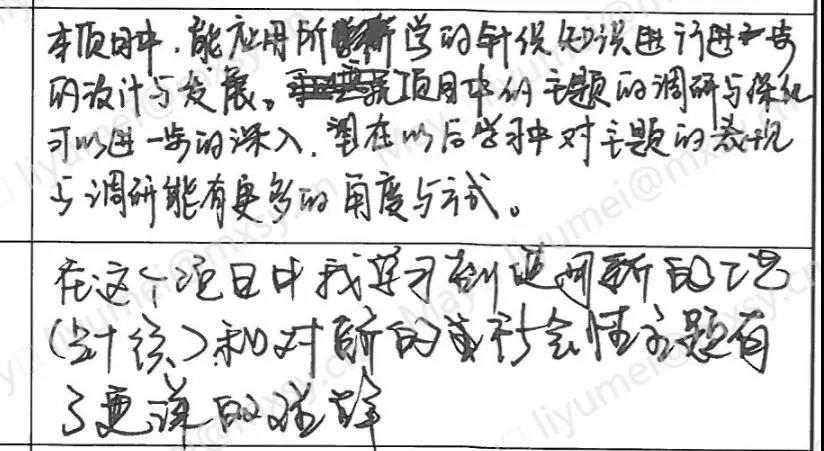 本项目中，能应用所学的针织知识进行进一步
的设计与发展。项目中的主题的调研与探究
可以进一步的深入，望在以后学习中对主题的表现
与调研能有更多的角度与方式。
在这个项目中我学习到运用新的工艺
(针织)和对所的社会性主题有
了更深的理解
liyumei@mxsy.cn